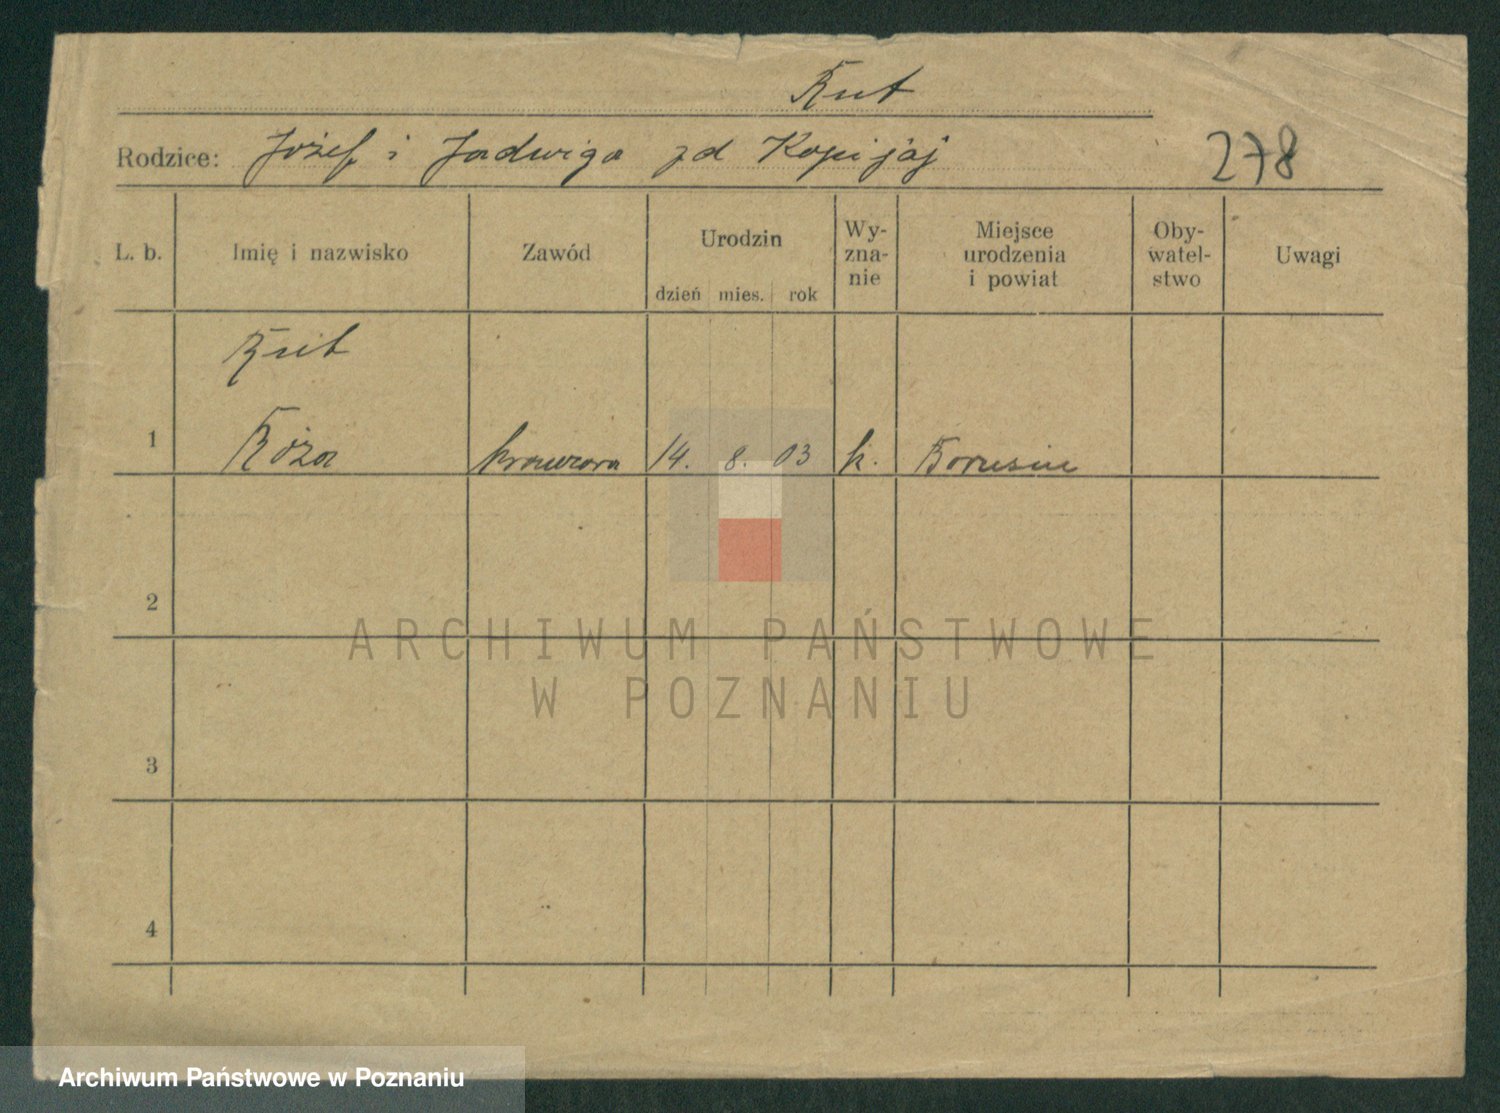 Rut
Rodzice: Józef i Jadwiga zd Kopijaj
278
L. b. Imię i nazwisko Zawód Urodzin dzień mies. rok Wy-zna-nie Miejsce urodzenia i powiat Oby-watel-stwo Uwagi
Rut
1 Róża krawcowa 14. 8. 03 k.
2
3
4
ARCHIWUM PAŃSTWOWE
W POZNANIU
Archiwum Państwowe w Poznaniu